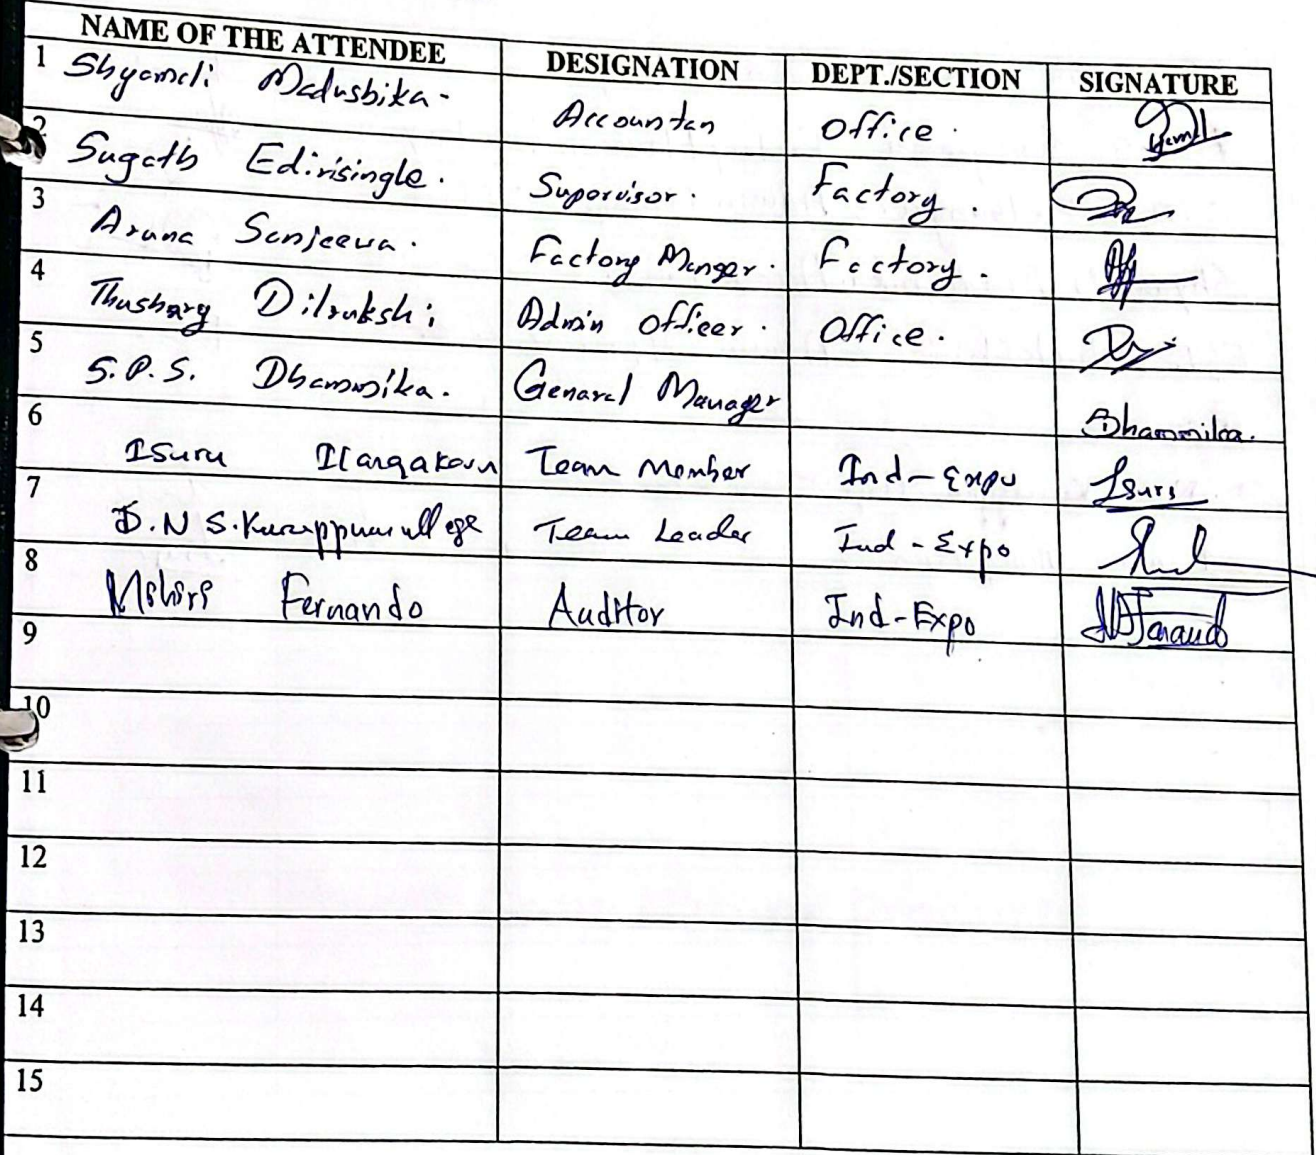 NAME OF THE ATTENDEE DESIGNATION DEPT./SECTION SIGNATURE
1 Shyamali Madushika. Accountan Office.
2 Sugath Edirisinghe. Supervisor. Factory.
3 Aruna Sanjeewa. Factory Manger. Factory.
4 Thushary Dilrukshi Admin Officer. Office.
5 S.P.S. Dhammika. Genaral Manager Dhammika.
6 Isuru Ilangakoon Team Member Ind-Expo Isuru
7 D.N.S. Team Leader Ind-Expo
8 Fernando Auditor Ind-Expo
9
10
11
12
13
14
15